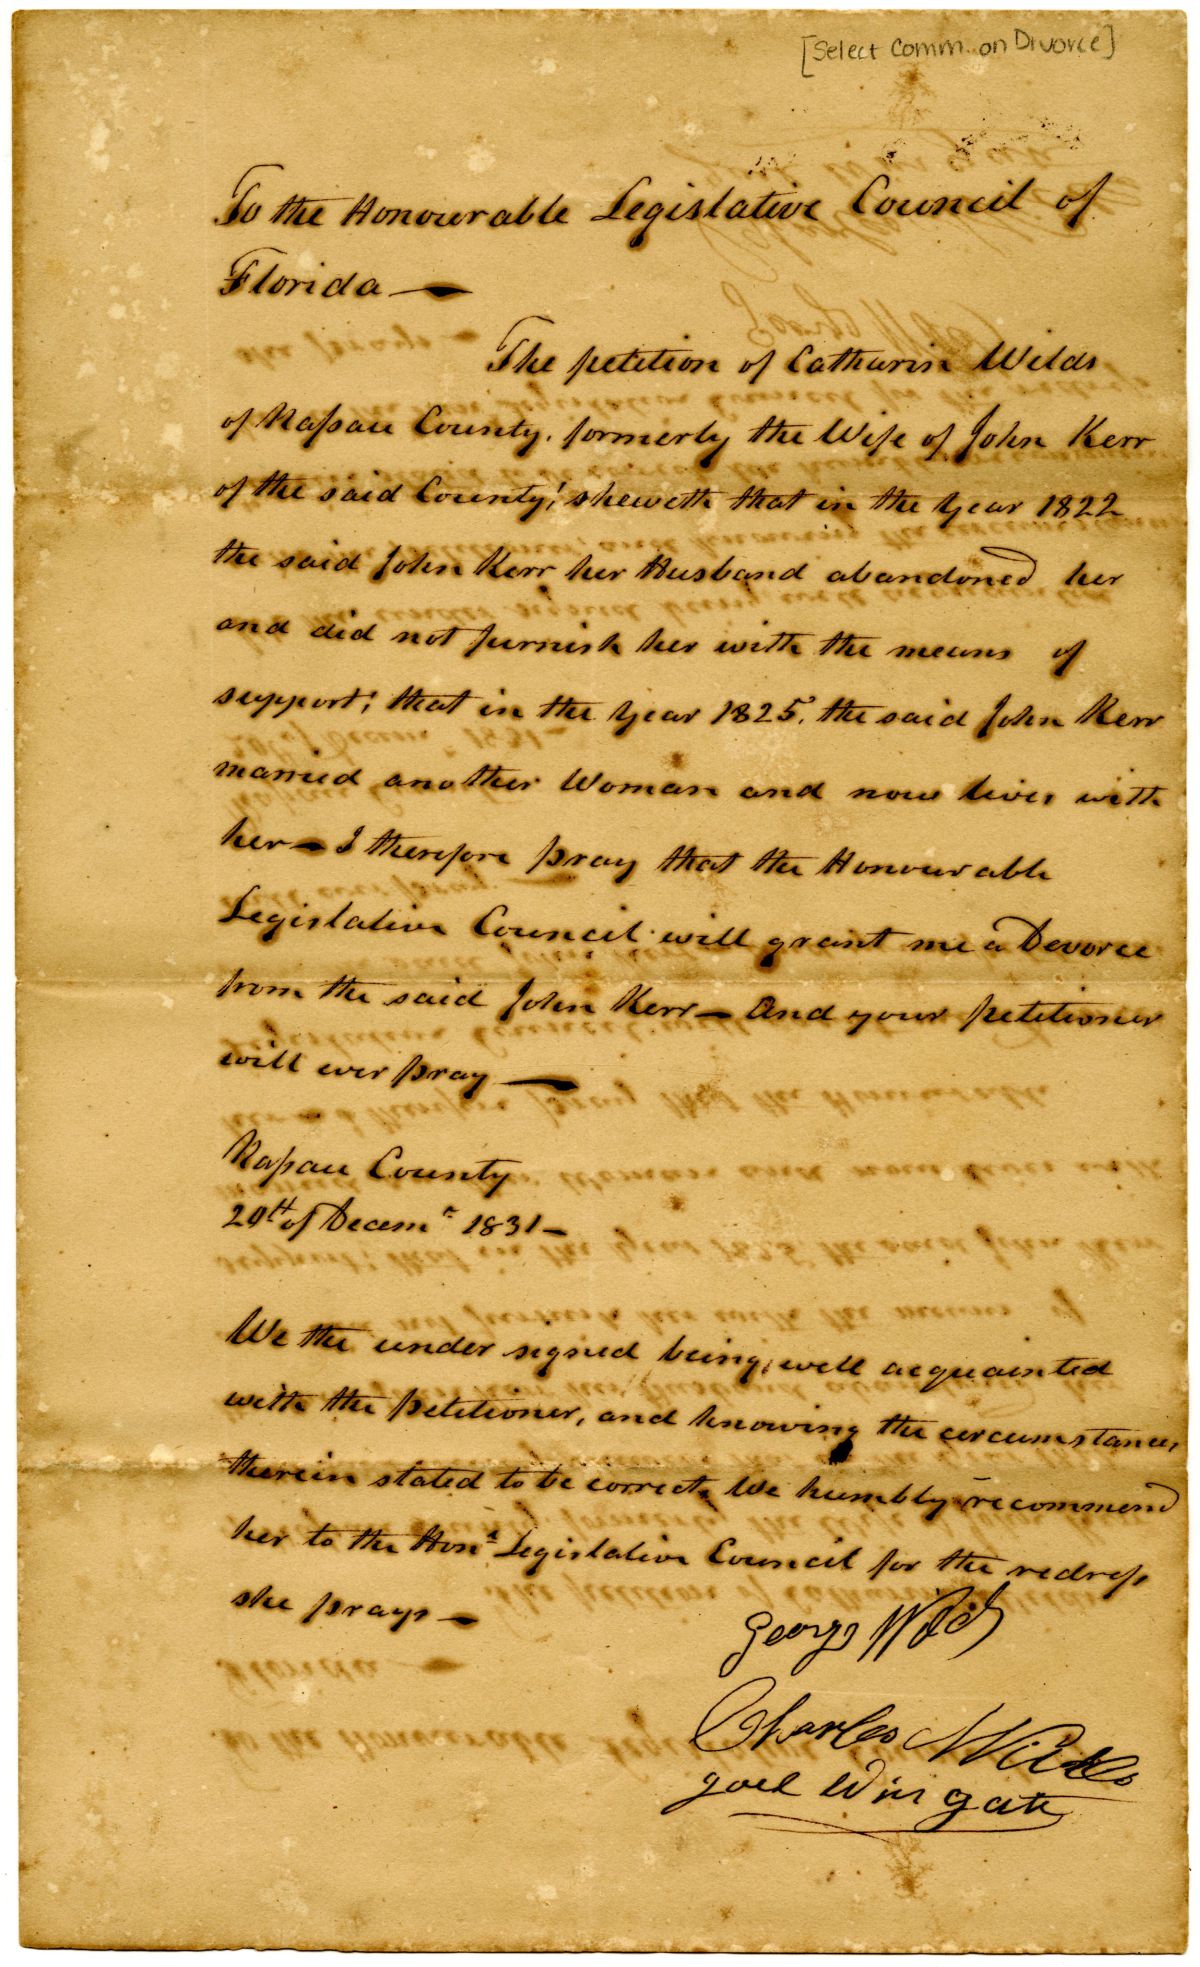 [Select Comm. on Divorce]
To the Honourable Legislative Council of
Florida —
The petition of Catharin Wilds
of Nassau County, formerly the Wife of John Kerr
of the said County; sheweth that in the Year 1822
the said John Kerr her Husband abandoned her
and did not furnish her with the means of
support; that in the Year 1825, the said John Kerr
married another Woman and now lives with
her — I therefore pray that the Honourable
Legislative Council will grant me a Devorce
from the said John Kerr — And your petitioner
will ever pray —
Nassau County
20th of Decemr 1831 —
We the under signed being well acquainted
with the petitioner, and knowing the cercumstances
therein stated to be correct, We humbly recommend
her to the Honl Legislative Council for the redress
she prays —
George Wilds
Charles Wilds
Joel Wingate